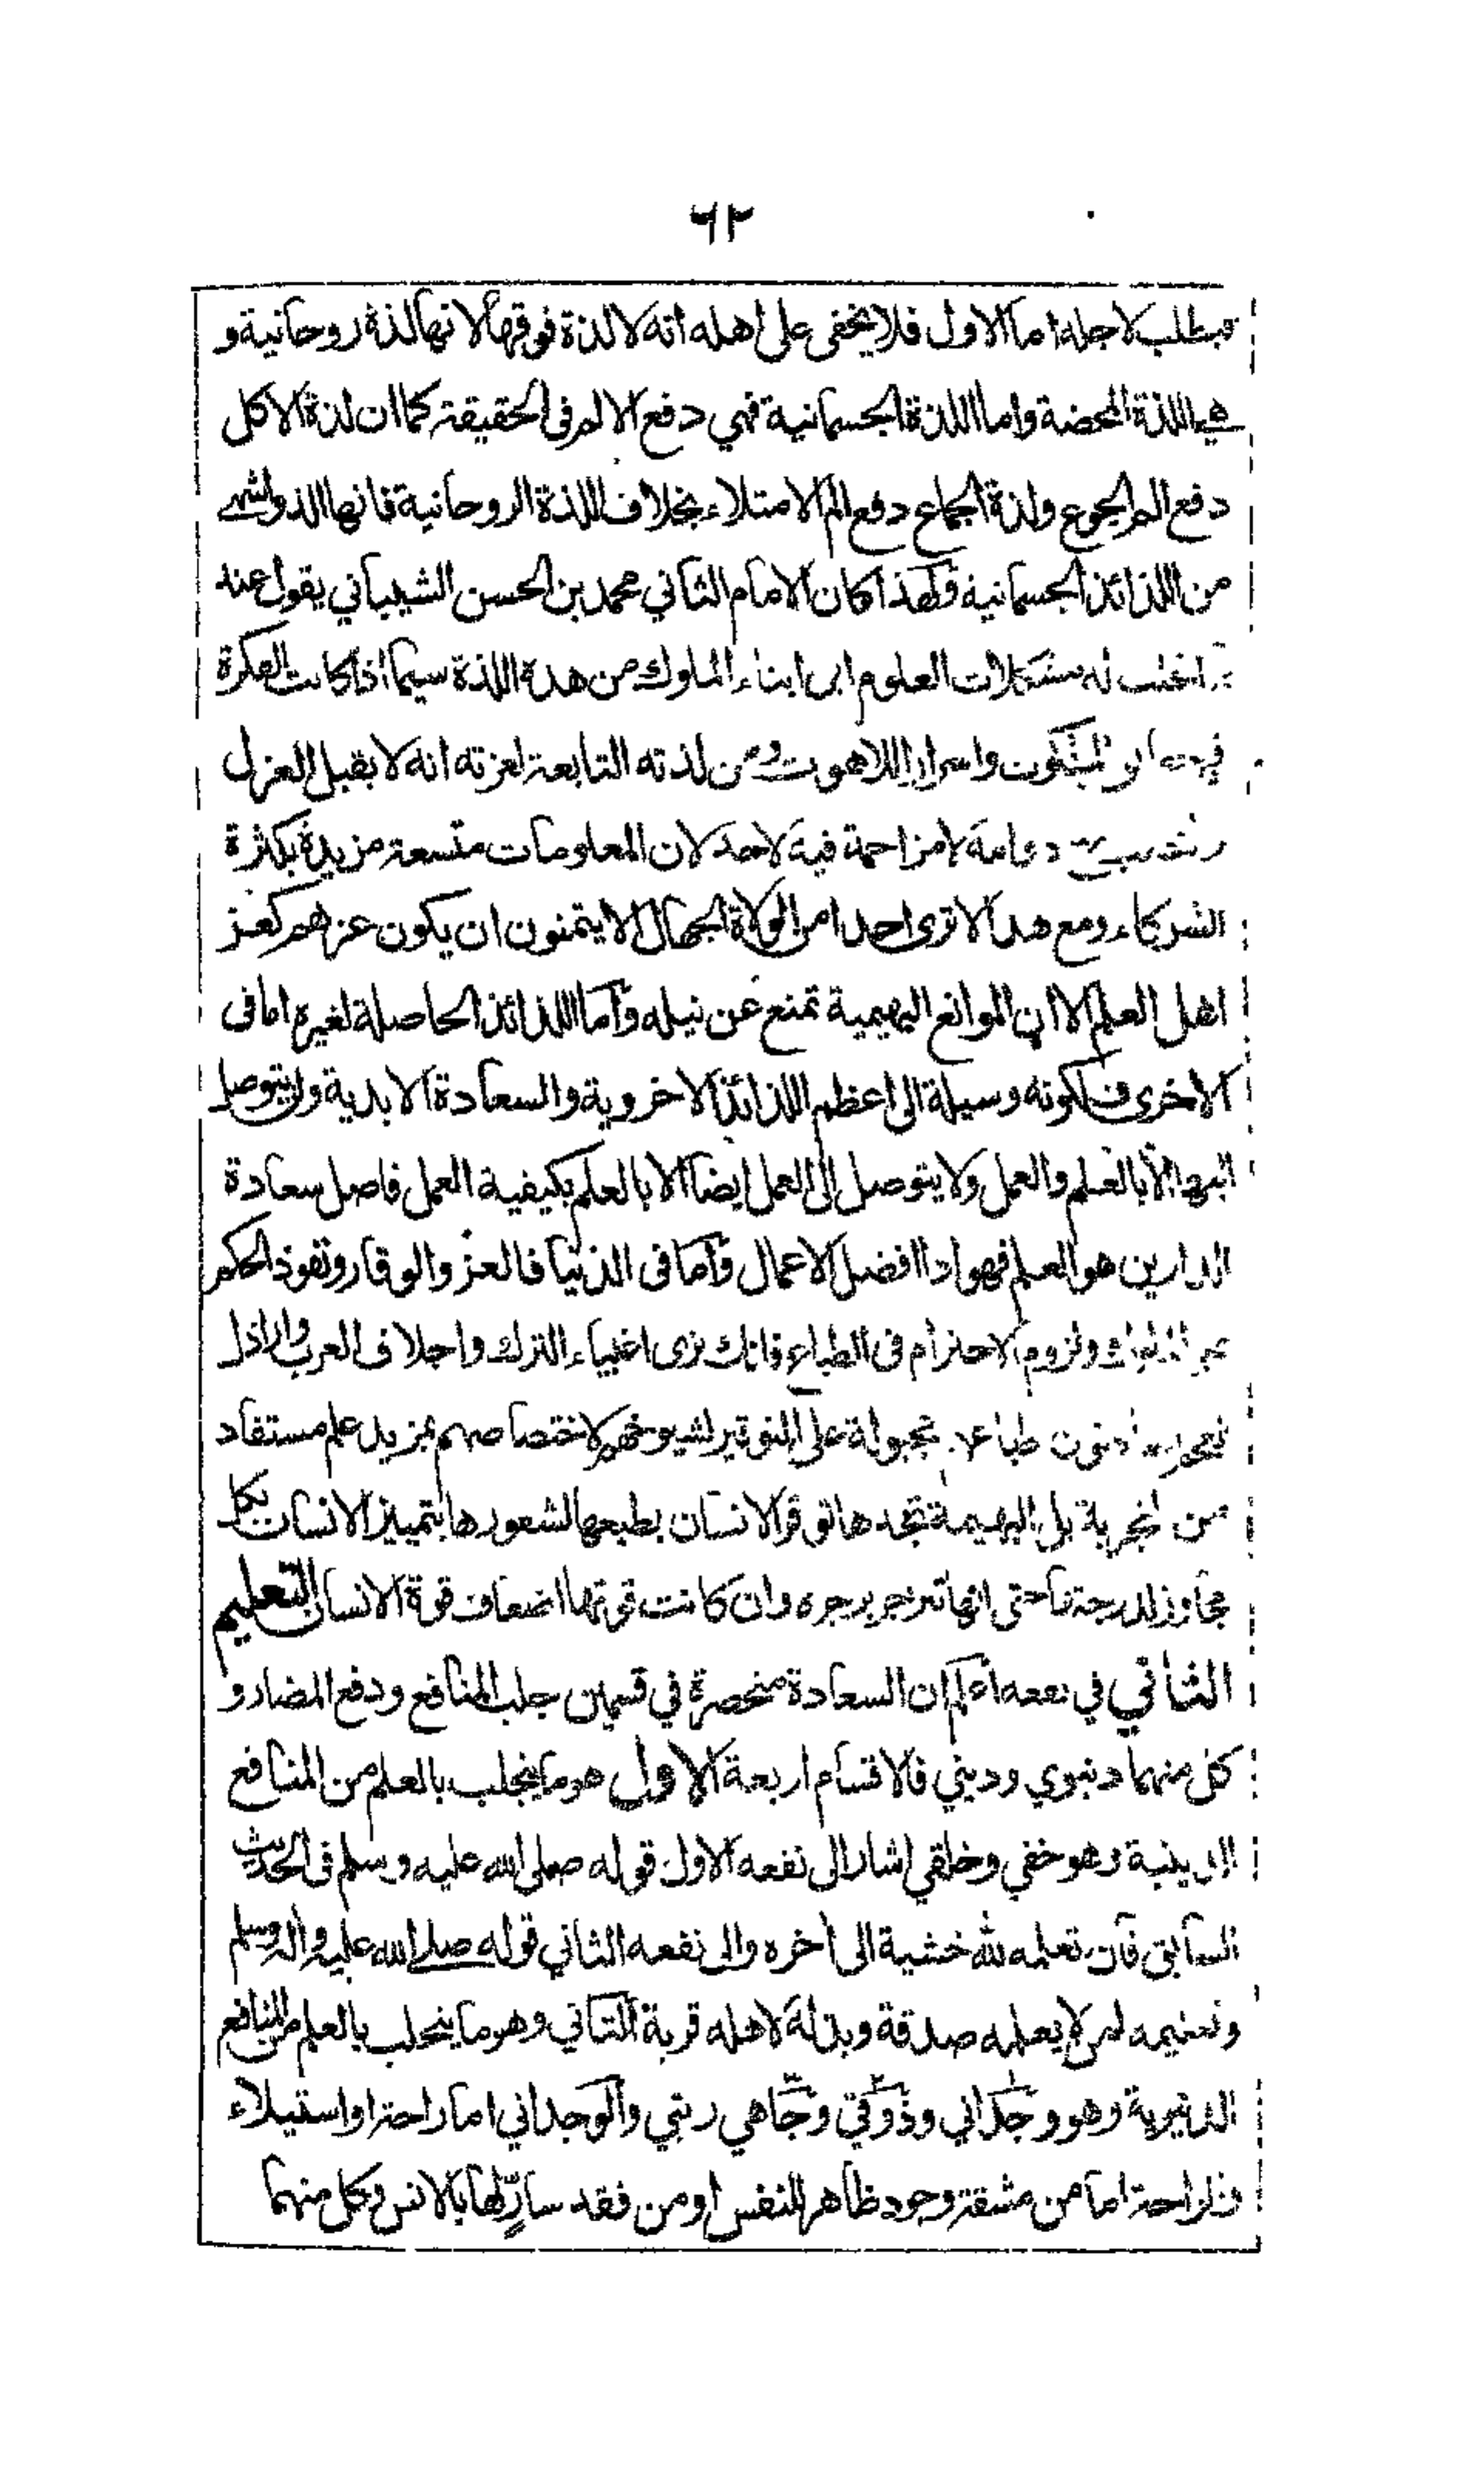 ٦٢
يطلب لاجله اما الاول فلا يخفى على اهله انه لا لذة فوقها لانها لذة روحانية و
هي اللذة المحضة واما اللذة الجسمانية فهي دفع الالم في الحقيقة كما ان لذة الاكل
دفع الم الجوع ولذة الجماع دفع الم الامتلاء بخلاف اللذة الروحانية فانها الذ واشهى
من اللذائذ الجسمانية ولهذا كان الامام الثاني محمد بن الحسن الشيباني يقول عند
انحلت له مشكلات العلوم اين ابناء الملوك من هذه اللذة سيما اذا كانت الفكرة
في الملكوت واسرار اللاهوت ومن لذته التابعة لعزته انه لا يقبل العزل
لا مزاحمة فيه لاحد لان المعلومات متسعة مزيدة بكثرة
الشركاء ومع هذا لا ترى احدا من الولاة الجهال الا يتمنون ان يكون عزهم كعز
اهل العلم الا ان الموانع البهيمية تمنع عن نيله واما اللذائذ الحاصلة لغيره اما في
الاخرى فلكونه وسيلة الى اعظم اللذائذ الاخروية والسعادة الابدية ولن يتوصل
اليها الا بالعلم والعمل ولا يتوصل الى العمل ايضا الا بالعلم بكيفية العمل فاصل سعادة
الدارين هو العلم فهو اذا افضل الاعمال واما في الدنيا فالعز والوقار ونفوذ الحكم
على الملوك ولزوم الاحترام في الطباع فانك ترى اغبياء الترك واجلاف العرب واراذل
طباعهم مجبولة على التوقير لشيوخهم لاختصاصهم بمزيد علم مستفاد
من التجربة بل البهيمة تجدها توقر الانسان بطبعها لشعورها بتميز الانسان بكمال
مجاوز لدرجتها حتى انها تنزجر بزجره وان كانت قوتها اضعاف قوة الانسان التعليم
الثاني في نفعه اعلم ان السعادة منحصرة في قسمين جلب المنافع ودفع المضار و
كل منهما دنيوي وديني فالاقسام اربعة الاول هو ما ينجلب بالعلم من المنافع
الدينية وهو خفي وخلقي اشار الى نفعه الاول قوله صلى الله عليه وسلم في الحديث
السابق فان تعلمه لله خشية الى اخره والى نفعه الثاني قوله صلى الله عليه واله وسلم
وتعليمه لمن لا يعلمه صدقة وبذله لاهله قربة الثاني وهو ما ينجلب بالعلم من المنافع
الدنيوية وهو وجداني وذوقي وجاهي رتبي والوجداني اما راحة او استيلاء
فالراحة اما من مشقة وجود ظاهر للنفس او من فقد سارّ لها بالانس وكل منهما